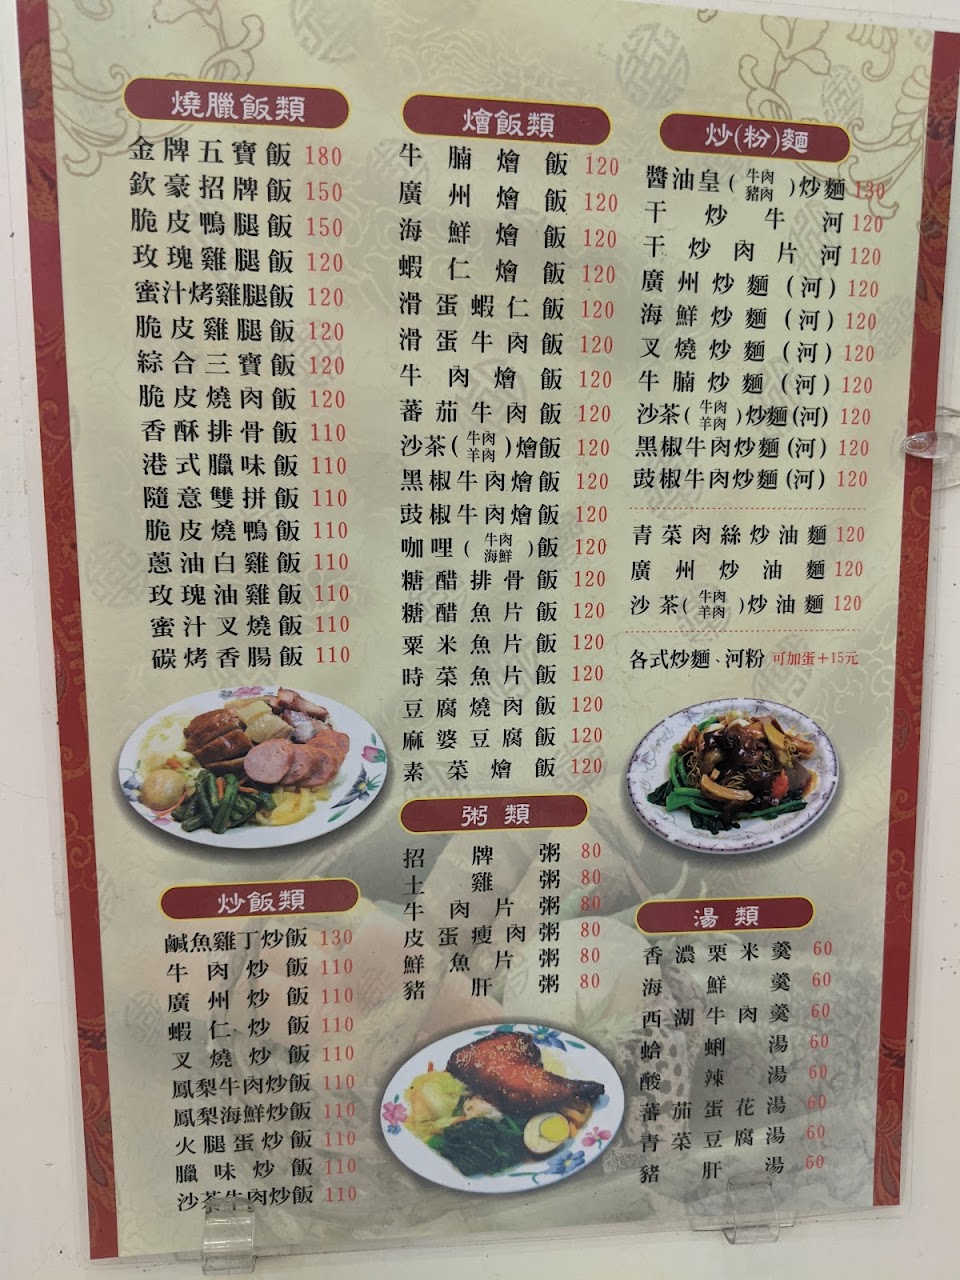 燒臘飯類
金牌五寶飯 180
欽豪招牌飯 150
脆皮鴨腿飯 150
玫瑰雞腿飯 120
蜜汁烤雞腿飯 120
脆皮雞腿飯 120
綜合三寶飯 120
脆皮燒肉飯 120
香酥排骨飯 110
港式臘味飯 110
隨意雙拼飯 110
脆皮燒鴨飯 110
蔥油白雞飯 110
玫瑰油雞飯 110
蜜汁叉燒飯 110
碳烤香腸飯 110
炒飯類
鹹魚雞丁炒飯 130
牛肉炒飯 110
廣州炒飯 110
蝦仁炒飯 110
叉燒炒飯 110
鳳梨牛肉炒飯 110
鳳梨海鮮炒飯 110
火腿蛋炒飯 110
臘味炒飯 110
沙茶牛肉炒飯 110
燴飯類
牛腩燴飯 120
廣州燴飯 120
海鮮燴飯 120
蝦仁燴飯 120
滑蛋蝦仁飯 120
滑蛋牛肉飯 120
牛肉燴飯 120
蕃茄牛肉飯 120
沙茶(牛肉 羊肉)燴飯 120
黑椒牛肉燴飯 120
豉椒牛肉燴飯 120
咖哩(牛肉 海鮮)飯 120
糖醋排骨飯 120
糖醋魚片飯 120
粟米魚片飯 120
時菜魚片飯 120
豆腐燒肉飯 120
麻婆豆腐飯 120
素菜燴飯 120
粥類
招牌粥 80
土雞粥 80
牛肉片粥 80
皮蛋瘦肉粥 80
鮮魚片粥 80
豬肝粥 80
炒(粉)麵
醬油皇(牛肉 豬肉)炒麵 130
干炒牛河 120
干炒肉片河 120
廣州炒麵(河) 120
海鮮炒麵(河) 120
叉燒炒麵(河) 120
牛腩炒麵(河) 120
沙茶(牛肉 羊肉)炒麵(河) 120
黑椒牛肉炒麵(河) 120
豉椒牛肉炒麵(河) 120
青菜肉絲炒油麵 120
廣州炒油麵 120
沙茶(牛肉 羊肉)炒油麵 120
各式炒麵、河粉 可加蛋+15元
湯類
香濃栗米羹 60
海鮮羹 60
西湖牛肉羹 60
蛤蜊湯 60
酸辣湯 60
蕃茄蛋花湯 60
青菜豆腐湯 60
豬肝湯 60